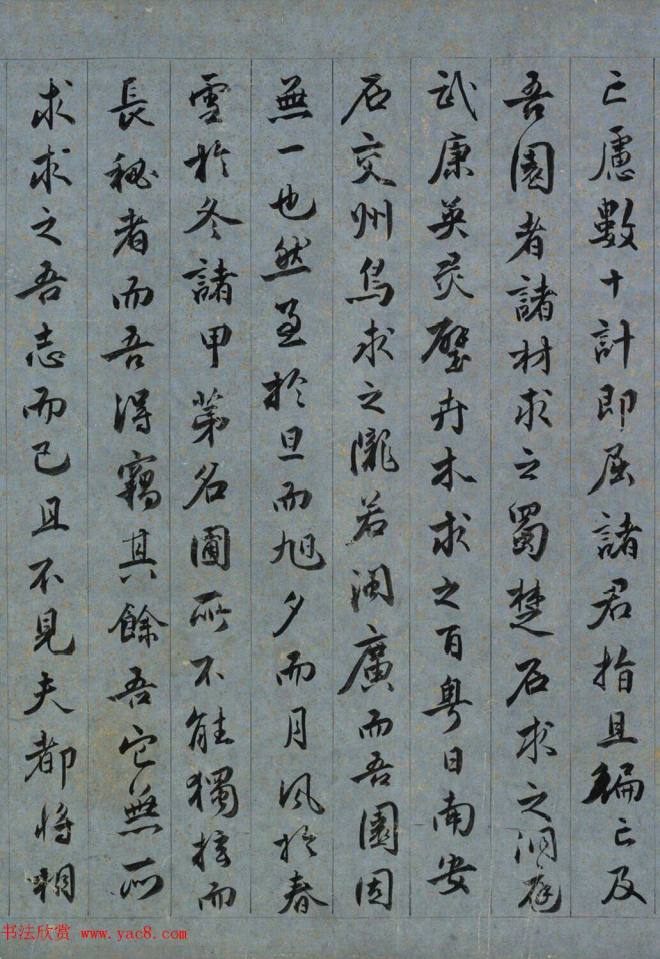 已處數十計即屈諸君指且徧已及
吾園者諸材求之蜀楚石求之洞庭
武康英靈璧卉木求之百粵日南安
石交州鳥求之隴若閩廣而吾園固
無一也然至於旦而旭夕而月風於春
雪於冬諸甲第名園所不能獨擅而
長秘者而吾得竊其餘吾它無所
求求之吾志而已且不見夫都將相
书法欣赏 www.yac8.com